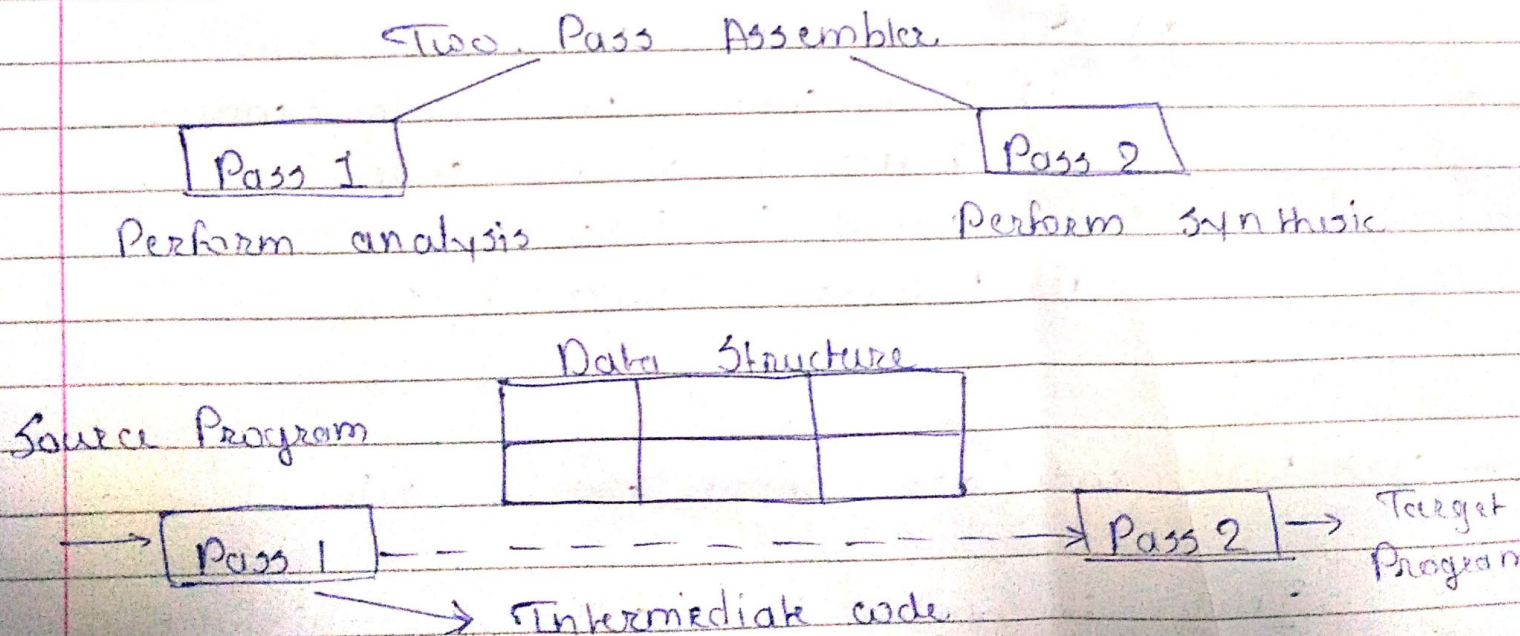 Two Pass Assembler
Pass 1
Pass 2
Perform analysis
Perform synthisic
Data Structure
Source Program
Pass 1
Pass 2
Target
Program
Intermediate code